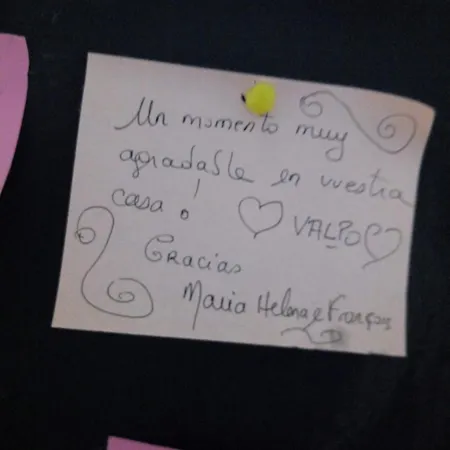 Un momento muy
agradable en vuestra
casa!
♡ VALPO ♡
Gracias
Maria Helena e François